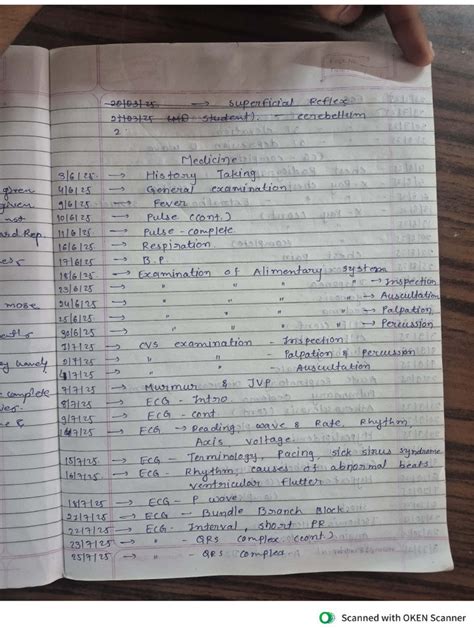 20/03/25 → Superficial Reflex
21/03/25 student). - cerebellum
2
Medicine
3/6/25 → History Taking
4/6/25 → General examination
9/6/25 → Fever
10/6/25 → Pulse (cont.)
11/6/25 → Pulse - complete
16/6/25 → Respiration
17/6/25 → B.P.
18/6/25 → Examination of Alimentary system
23/6/25 → " " " " → Inspection
24/6/25 → " " " " → Auscultation
25/6/25 → " " " " → Palpation
30/6/25 → " " " " → Percussion
1/7/25 → CVS examination - Inspection
2/7/25 → " " - Palpation & Percussion
→ " " - Auscultation
7/7/25 → Murmur & JVP
8/7/25 → ECG - Intro
9/7/25 → ECG - cont
→ ECG → Reading, wave & Rate, Rhythm,
Axis voltage.
15/7/25 → ECG - Terminology, Pacing, sick sinus syndrome
16/7/25 → ECG - Rhythm, causes of abnormal beats
ventricular flutter
18/7/25 → ECG - P wave
21/7/25 → ECG - Bundle Branch Block
22/7/25 → ECG - Interval, short PR
23/7/25 → " - QRS complex (cont)
25/7/25 → " - QRS complex
given
given
not
ard. Rep.
more
complete
Scanned with OKEN Scanner